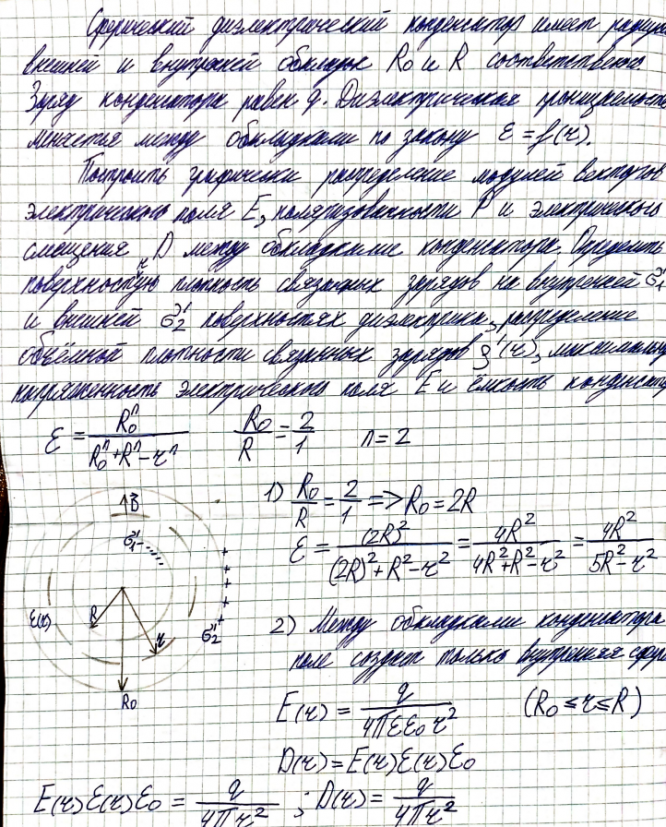 Сферический диэлектрический конденсатор имеет радиусы
внешней и внутренней обкладок R₀ и R соответственно
Заряд конденсатора равен q. Диэлектрическая проницаемость
меняется между обкладками по закону ε = f(r).
Построить графически распределение модулей векторов
электрического поля E, поляризованности P и электрического
смещения D между обкладками конденсатора. Определить
поверхностную плотность связанных зарядов на внутренней σ₁'
и внешней σ₂' поверхностях диэлектрика, распределение
объёмной плотности связанных зарядов ρ'(r), максимальную
напряжённость электрического поля E и ёмкость
ε = R₀ⁿ / (R₀ⁿ + Rⁿ - rⁿ)    R₀/R = 2/1    n = 2
1) R₀/R = 2/1 => R₀ = 2R
ε = (2R)² / ((2R)² + R² - r²) = 4R² / (4R² + R² - r²) = 4R² / (5R² - r²)
σ₁'
ε(r)
R
r
σ₂'
R₀
2) Между обкладками конденсатора
поле создаёт только внутренняя
E(r) = q / (4πεε₀r²)    (R₀ ≤ r ≤ R)
D(r) = E(r)ε(r)ε₀
E(r)ε(r)ε₀ = q / (4πr²) ; D(r) = q / (4πr²)